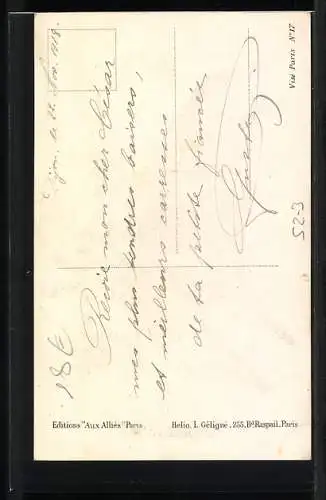 Dijon, le 22 Nov. 1918.
Reçois mon cher César
mes plus tendres baisers,
et meilleurs caresses
de ta petite fiancée
Visé Paris N° 17
52-3
18€
Editions "Aux Alliés" Paris
Helio. L. Géligné, 255, Bd Raspail, Paris